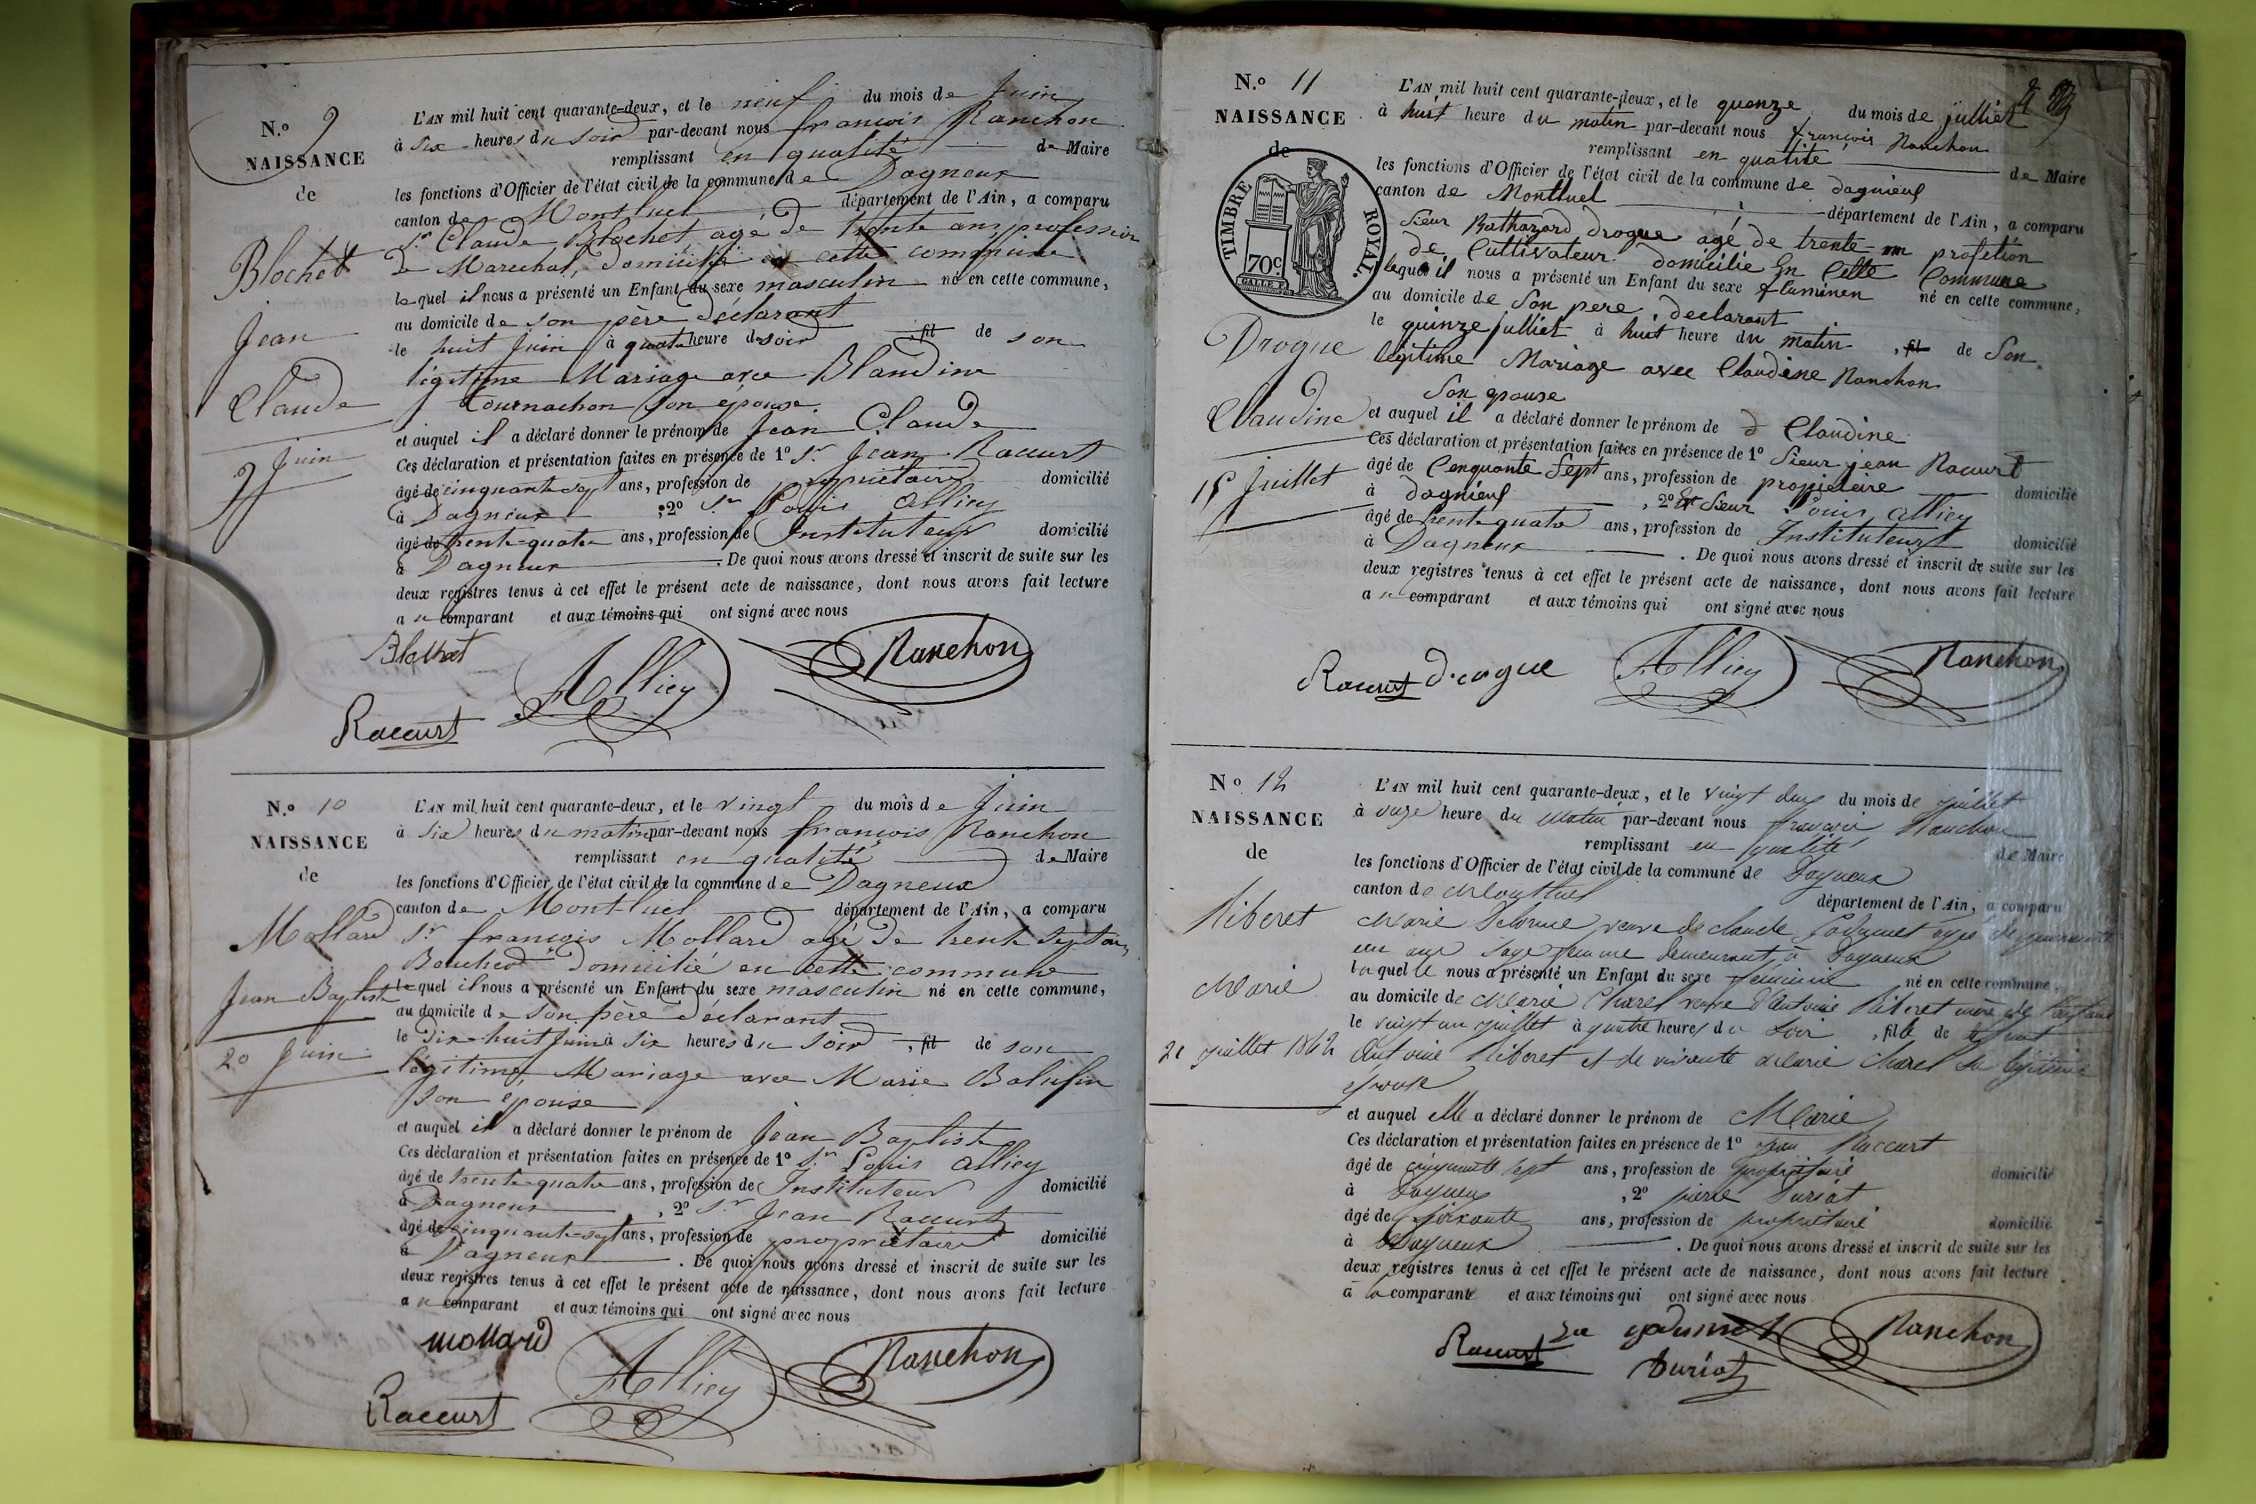 N.º 9
NAISSANCE
de
Blochet
Jean
Claude
9 Juin
L'AN mil huit cent quarante-deux, et le neuf du mois de Juin
à Six heures du soir par-devant nous françois Ranchon
remplissant en qualité de Maire
les fonctions d'Officier de l'état civil de la commune de Dagneux
canton de Montluel département de l'Ain, a comparu
Sr Claude Blochet agé de trente ans profession
de Marechal, domicilié en cette commune
lequel il nous a présenté un Enfant du sexe masculin né en cette commune,
au domicile de son père déclarant
le huit Juin à quatre heure du soir , fil de son
légitime Mariage avec Blandine
tournachon son epouse
et auquel il a déclaré donner le prénom de Jean Claude
Ces déclaration et présentation faites en présence de 1º Sr Jean Raccurt
âgé de cinquante-sept ans, profession de propriétaire domicilié
à Dagneux , 2º Sr Louis Alliey
âgé de trente-quatre ans, profession de Instituteur domicilié
à Dagneux . De quoi nous avons dressé et inscrit de suite sur les
deux registres tenus à cet effet le présent acte de naissance, dont nous avons fait lecture
au comparant et aux témoins qui ont signé avec nous
Blochet
Alliey
Ranchon
Raccurt
N.º 10
NAISSANCE
de
Mollard
Jean Baptiste
20 Juin
L'AN mil huit cent quarante-deux, et le vingt du mois de Juin
à Six heures du matin par-devant nous françois Ranchon
remplissant en qualité de Maire
les fonctions d'Officier de l'état civil de la commune de Dagneux
canton de Montluel département de l'Ain, a comparu
Sr françois Mollard agé de trente Sept ans,
Boucher domicilié en cette commune
lequel il nous a présenté un Enfant du sexe masculin né en cette commune,
au domicile de son père déclarant
le Dix-huit Juin à Six heures du soir , fil de son
légitime Mariage avec Marie
son epouse
et auquel il a déclaré donner le prénom de Jean Baptiste
Ces déclaration et présentation faites en présence de 1º Sr Louis Alliey
âgé de trente-quatre ans, profession de Instituteur domicilié
à Dagneux , 2º Sr Jean Raccurt
âgé de cinquante-sept ans, profession de propriétaire domicilié
à Dagneux . De quoi nous avons dressé et inscrit de suite sur les
deux registres tenus à cet effet le présent acte de naissance, dont nous avons fait lecture
au comparant et aux témoins qui ont signé avec nous
mollard
Alliey
Ranchon
Raccurt
N.º 11
NAISSANCE
de
TIMBRE ROYAL.
70c
Drogue
Claudine
15 Juillet
L'AN mil huit cent quarante-deux, et le quenze du mois de julliet
à huit heure du matin par-devant nous françois Ranchon
remplissant en qualité de Maire
les fonctions d'Officier de l'état civil de la commune de dagnieux
canton de Montluel département de l'Ain, a comparu
Sieur Bathazard drogue agé de trente-un profetion
de Cultivateur domicilie En Cette Commune
lequel il nous a présenté un Enfant du sexe né en cette commune,
au domicile de Son pere, declarant
le quinze julliet à huit heure du matin , fil de Son
legitime Mariage avec Claudine Ranchon
Son epouse
et auquel il a déclaré donner le prénom de d Claudine
Ces déclaration et présentation faites en présence de 1º Sieur jean Racurt
âgé de Cenquante Sept ans, profession de propieteire
à dagnieux , 2º Et Sieur Louis Alliey domicilié
âgé de trente-quatre ans, profession de Instituteur
à Dagneux . De quoi nous avons dressé et inscrit de suite sur les domicilié
deux registres tenus à cet effet le présent acte de naissance, dont nous avons fait lecture
au comparant et aux témoins qui ont signé avec nous
Raccurt drogue
Alliey
Ranchon
Nº 12
NAISSANCE
de
Riberet
Marie
21 juillet 1842
L'AN mil huit cent quarante-deux, et le vingt deux du mois de juillet
à onze heure du matin par-devant nous françois Ranchon
remplissant en qualité de Maire
les fonctions d'Officier de l'état civil de la commune de Dagneux
canton de Montluel département de l'Ain, a comparu
Marie veuve de claude agée de quarante
un ans Sage femme demeurant à Dagneux
laquelle nous a présenté un Enfant du sexe feminin né en cette commune,
au domicile de Marie Charel veuve d'Antoine Riberet mère de l'enfant
le vingt un juillet à quatre heures du Soir , fille de défunt
Antoine Riberet et de vivante Marie Charel sa légitime
épouse
et auquel elle a déclaré donner le prénom de Marie
Ces déclaration et présentation faites en présence de 1º jean Raccurt
âgé de cinquante sept ans, profession de propriétaire domicilié
à Dagneux , 2º pierre Duriat
âgé de soixante ans, profession de propriétaire domicilié
à Dagneux . De quoi nous avons dressé et inscrit de suite sur les
deux registres tenus à cet effet le présent acte de naissance, dont nous avons fait lecture
à la comparante et aux témoins qui ont signé avec nous
Raccurt
Ranchon
Duriat